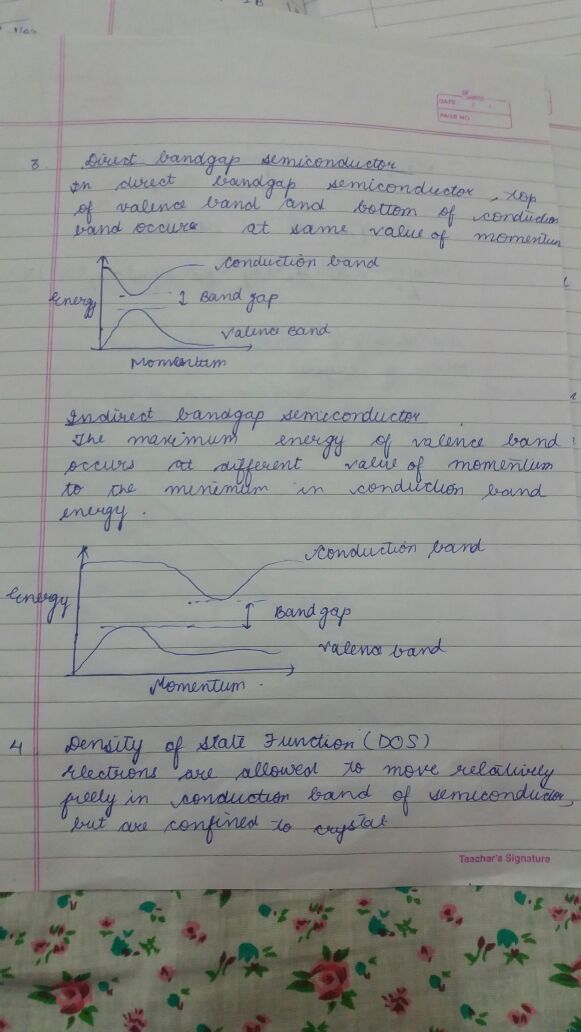 DATE:
PAGE NO.:
3 Direct bandgap semiconductor
In direct bandgap semiconductor, top
of valence band and bottom of conduction
band occurs at same value of momentum
Conduction band
Energy
Band gap
Valence Band
Momentum
Indirect bandgap semiconductor
The maximum energy of valence band
occurs at different value of momentum
to the minimum in conduction band
energy.
Conduction band
Energy
Bandgap
Valence band
Momentum.
4 Density of state Function (DOS)
Electrons are allowed to move relatively
freely in conduction band of semiconductor,
but are confined to crystal
Teacher's Signature